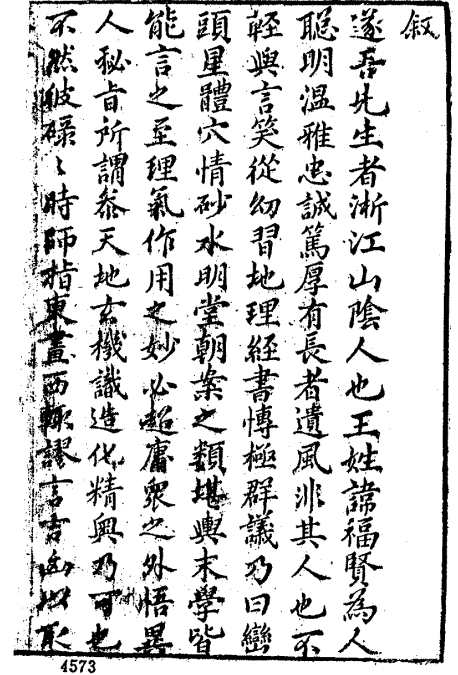 叙
遂吾先生者浙江山陰人也王姓諱福賢為人
聰明温雅忠誠篤厚有長者遺風非其人也不
輕與言笑從幼習地理經書博極群議乃曰巒
頭星體穴情砂水明堂朝案之類堪輿末學皆
能言之至理氣作用之妙必超庸衆之外悟異
人秘旨所謂叅天地玄機識造化精奥乃可也
不然彼碌〻時師指東畫西輙謬言吉凶以取
4573